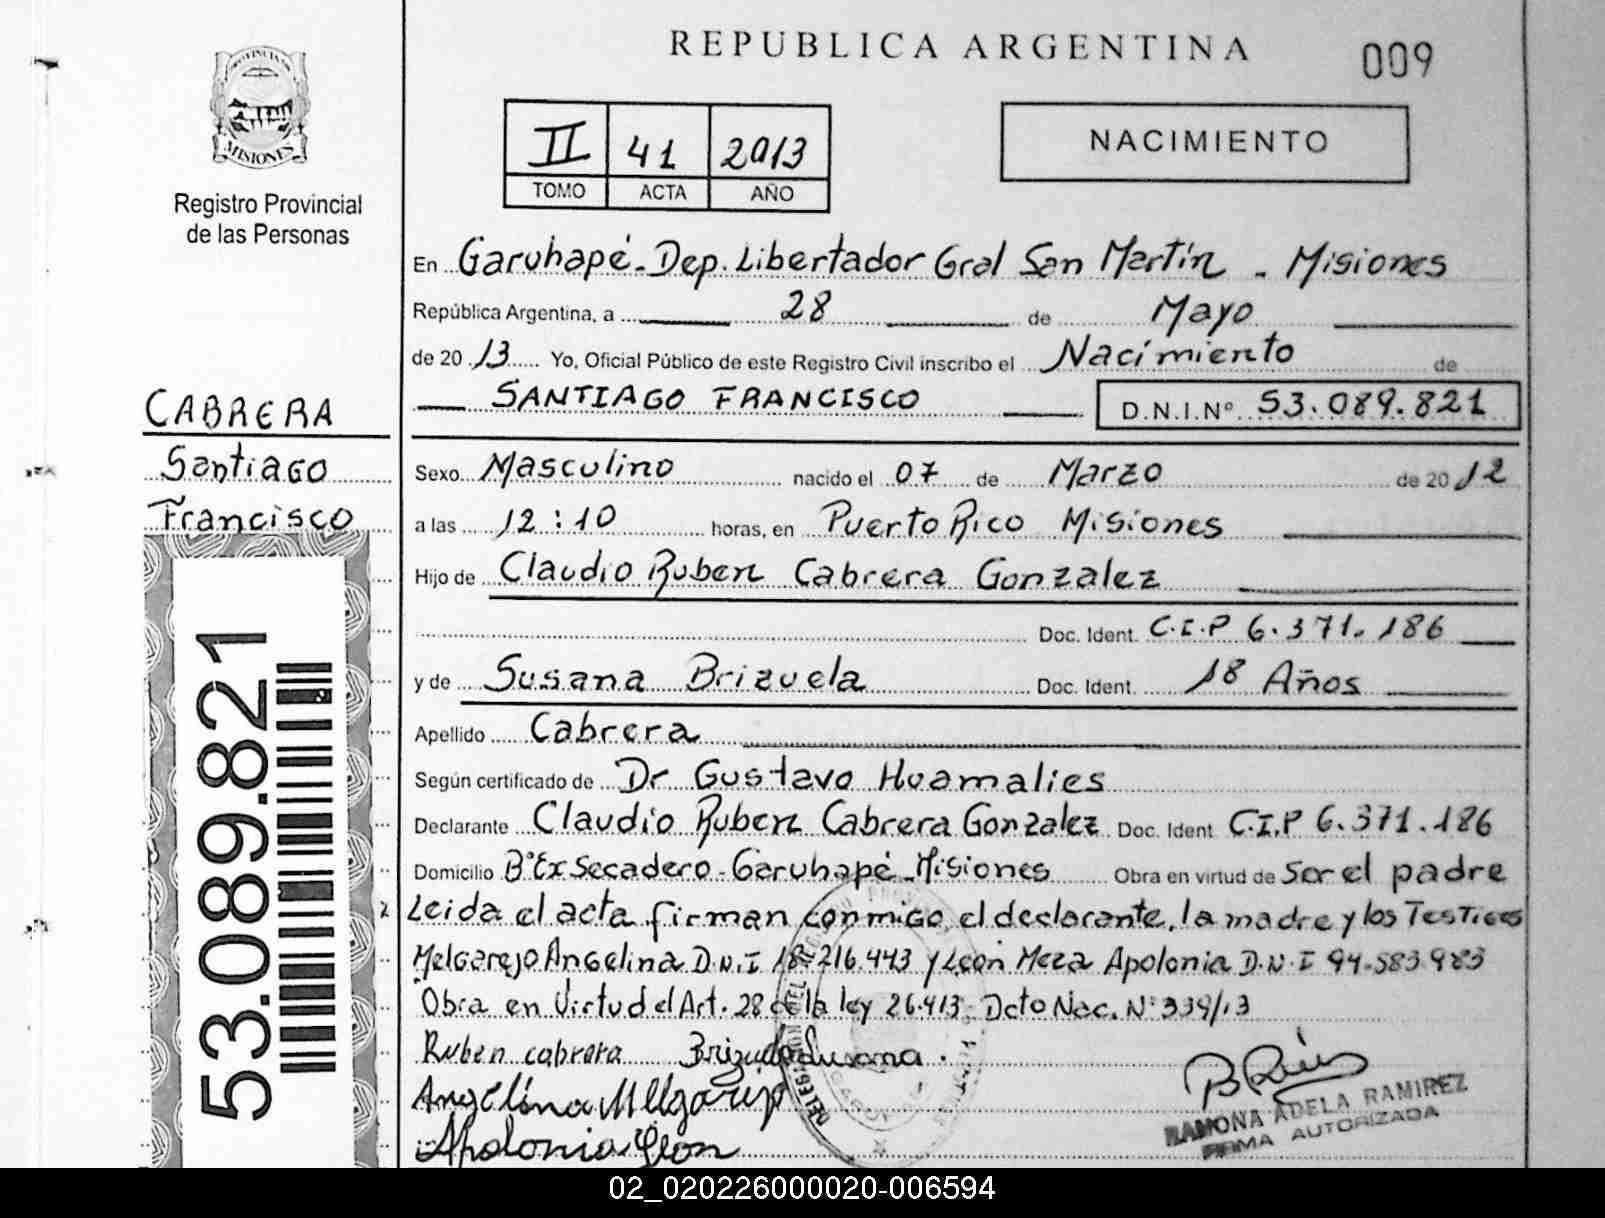 REPUBLICA ARGENTINA
009
PROVINCIA DE
MISIONES
Registro Provincial
de las Personas
II 41 2013
TOMO ACTA AÑO
NACIMIENTO
En Garuhapé - Dep. Libertador Gral San Martín - Misiones
República Argentina, a 28 de Mayo
de 2013 Yo, Oficial Público de este Registro Civil inscribo el Nacimiento de
SANTIAGO FRANCISCO D.N.I.Nº 53.089.821
CABRERA
Santiago
Francisco
53.089.821
Sexo Masculino nacido el 07 de Marzo de 2012
a las 12:10 horas, en Puerto Rico Misiones
Hijo de Claudio Ruben Cabrera Gonzalez
Doc. Ident. C.I.P 6.371.186
y de Susana Brizuela Doc. Ident. 18 Años
Apellido Cabrera
Según certificado de Dr Gustavo Huamalies
Declarante Claudio Ruben Cabrera Gonzalez Doc. Ident C.I.P 6.371.186
Domicilio Bº Ex Secadero - Garuhapé - Misiones Obra en virtud de Ser el padre
Leida el acta firman conmigo el declarante, la madre y los Testigos
Melgarejo Angelina D.N.I 18.216.443 y Leon Meza Apolonia D.N.I 94.583.983
Obra en Virtud el Art. 28 de la ley 26.413 - Dcto Nac. Nº 339/13
Ruben cabrera Brizuela Susana
Angelina Melgarejo
Apolonia Leon
RAMONA ADELA RAMIREZ
FIRMA AUTORIZADA
02_020226000020-006594